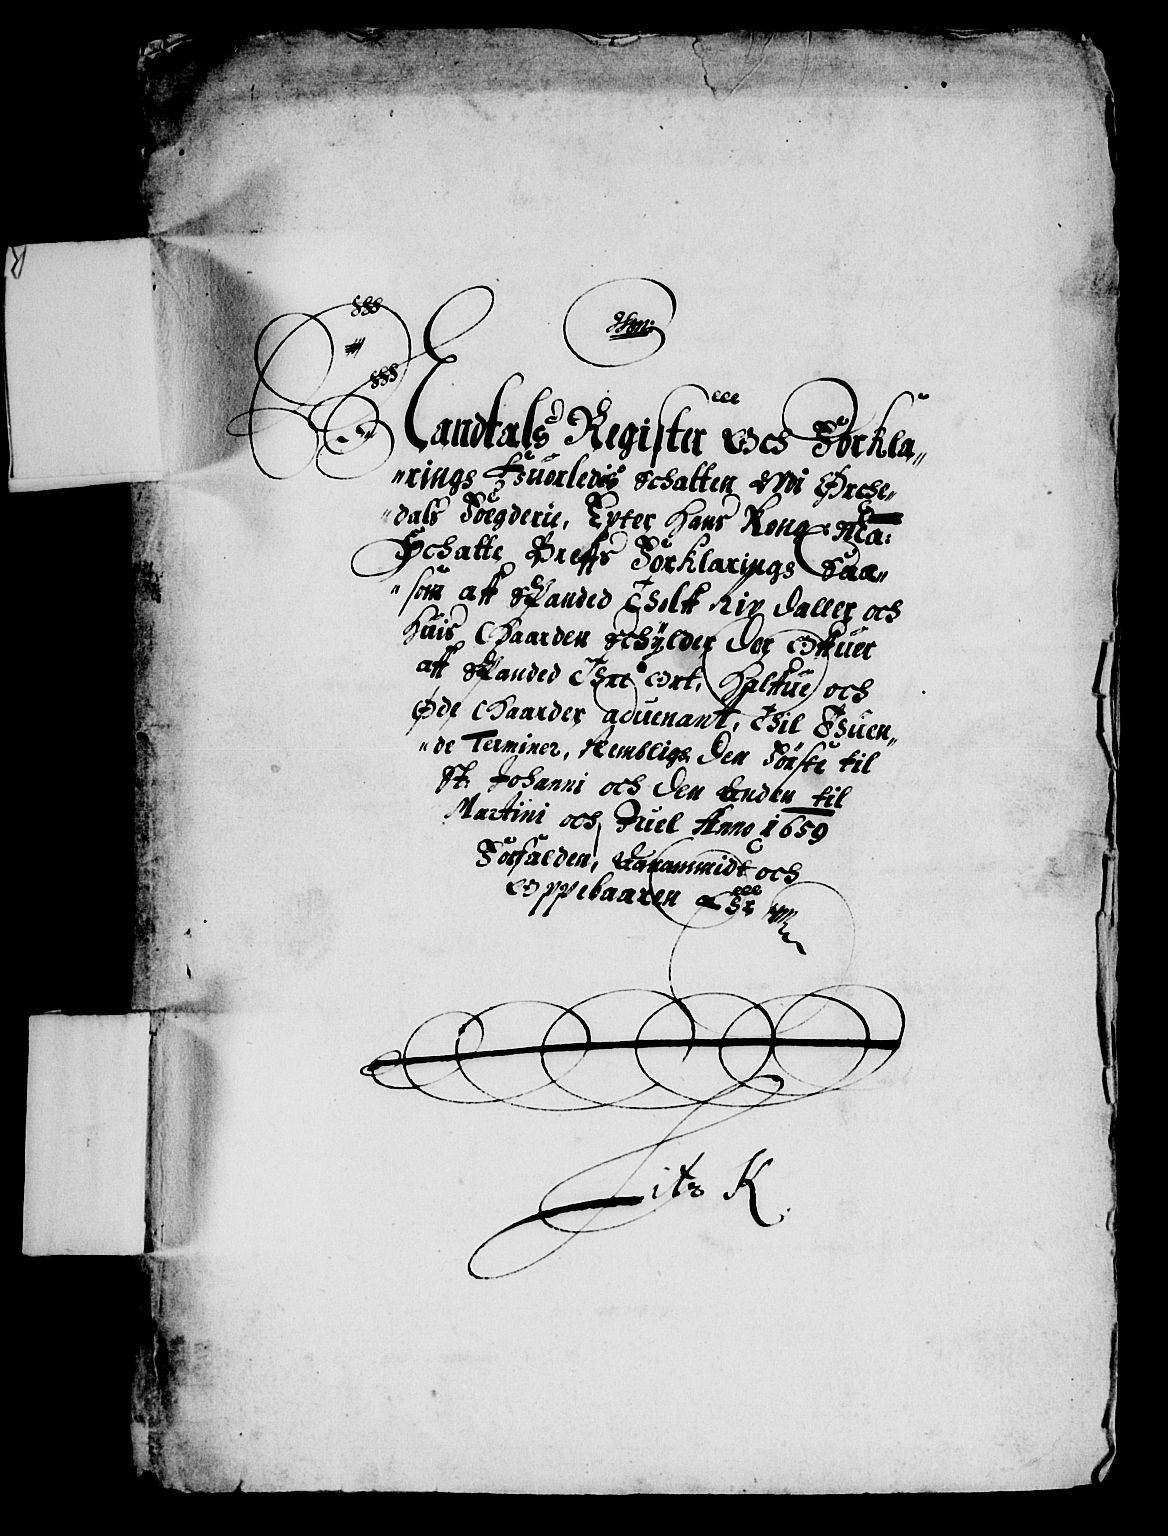 Mandtals Register Och Förkla„
„rings Huorledis Schatten Udi Ørche„
dals Foegderie, Epter Hans Kong: Ma:
Schatte Breffs Förklarings Saa„
„som aff Huanded Tholff Rix daller och
huis Gaarden Schylder der Offuer
aff Huanded Thre Ort, Halffue och
Øde Gaarder aduenant, Thil Thuen„
„de Terminer, Nembligh Den Förste til
St: Johanni och den Anden til
Martini och Juel Anno 1659
Forfalden, Annammidt och
Oppebaaren Er
Litr K